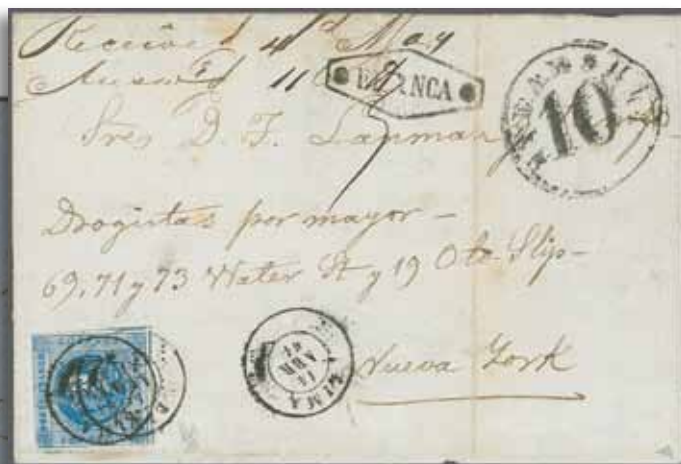 Received 4th May
Answd 11
FRANCA
STEAM SHIP
10
Sres D. T. Lanman
Drogistas por mayor -
69, 71 y 73 Water St y 19 Old Slip -
LIMA
Nueva York